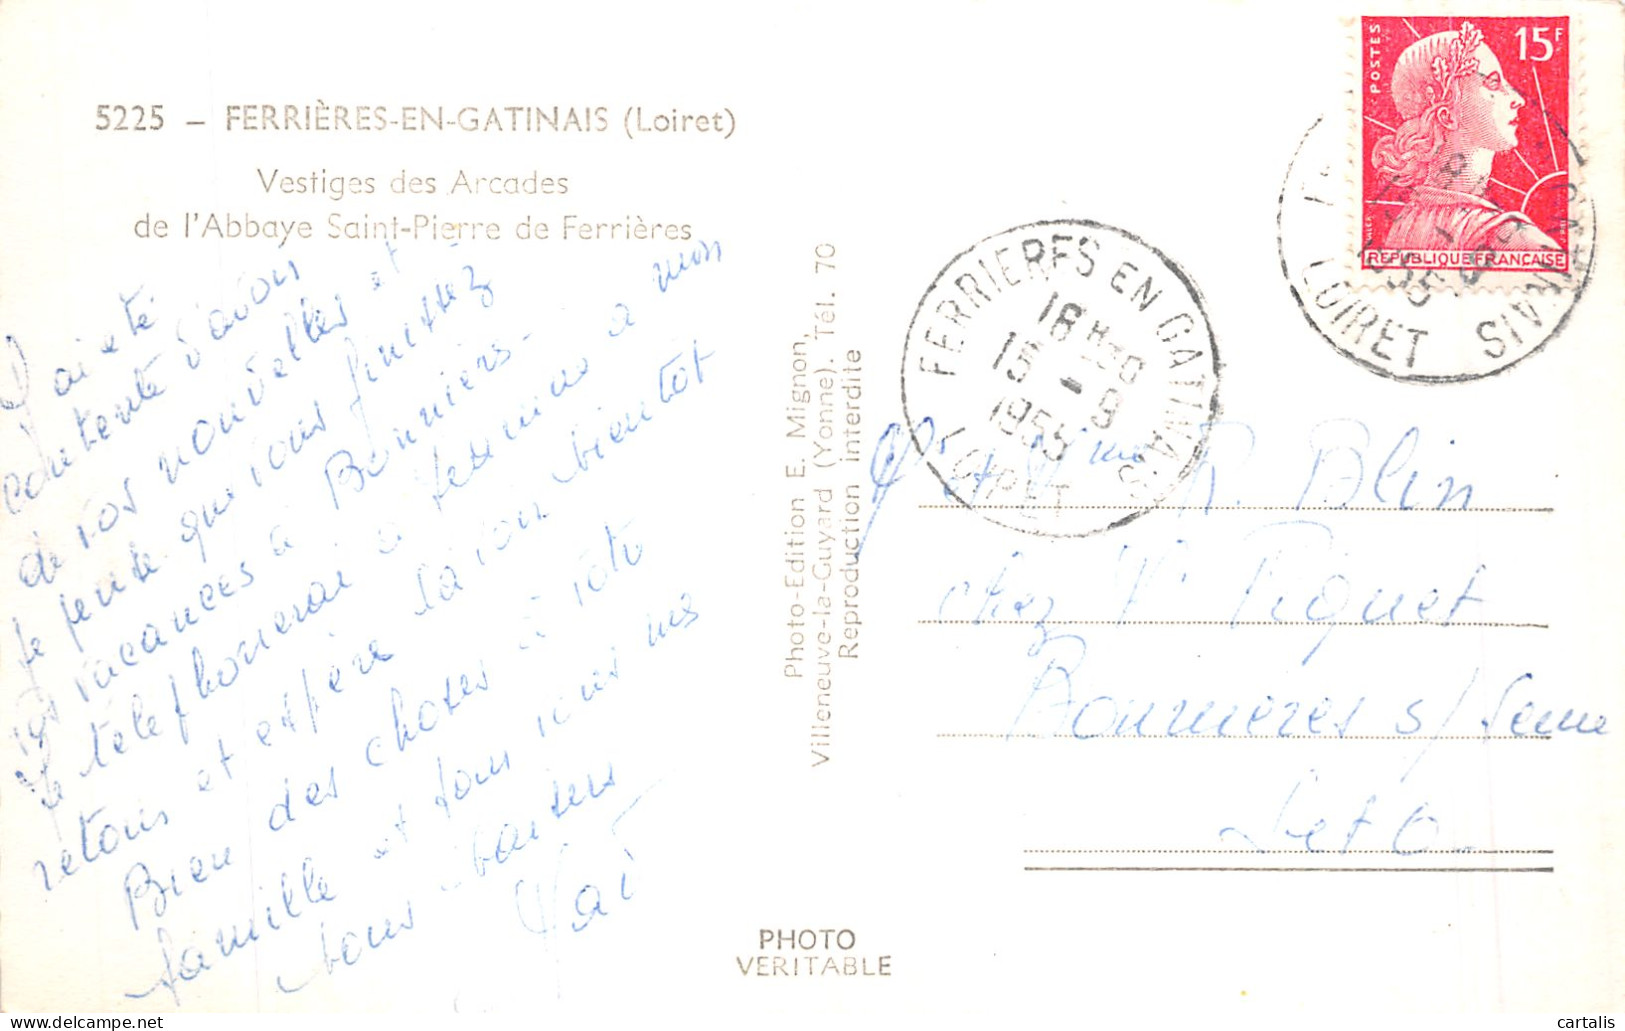 5225 – FERRIÈRES-EN-GATINAIS (Loiret)
Vestiges des Arcades
de l'Abbaye Saint-Pierre de Ferrières
J'ai été
contente d'avoir
de vos nouvelles et
je pense que vous finissez
vos vacances à Bonnières.
Je téléphonerai à
retour et espère
Bien des choses à votre
famille et pour vous mes
bons baisers
Photo-Edition E. Mignon,
Villeneuve-la-Guyard (Yonne). Tél. 70
Reproduction interdite
PHOTO
VERITABLE
POSTES
15F
REPUBLIQUE FRANÇAISE
FERRIERES EN GATINAIS
18H30
15 - 9
1955
LOIRET
LOIRET
Mr et Mme R. Blin
chez Mr Piquet
Bonnières s/ Seine
S et O
cartalis